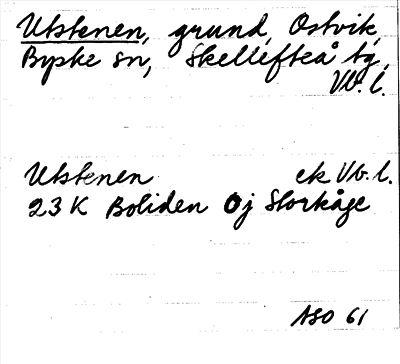 Utstenen, grund, Ostvik,
Byske sn, Skellefteå tg,
Vb. l.
Utstenen ek Vb. l.
23 K Boliden 0j Storkåge
ASO 61